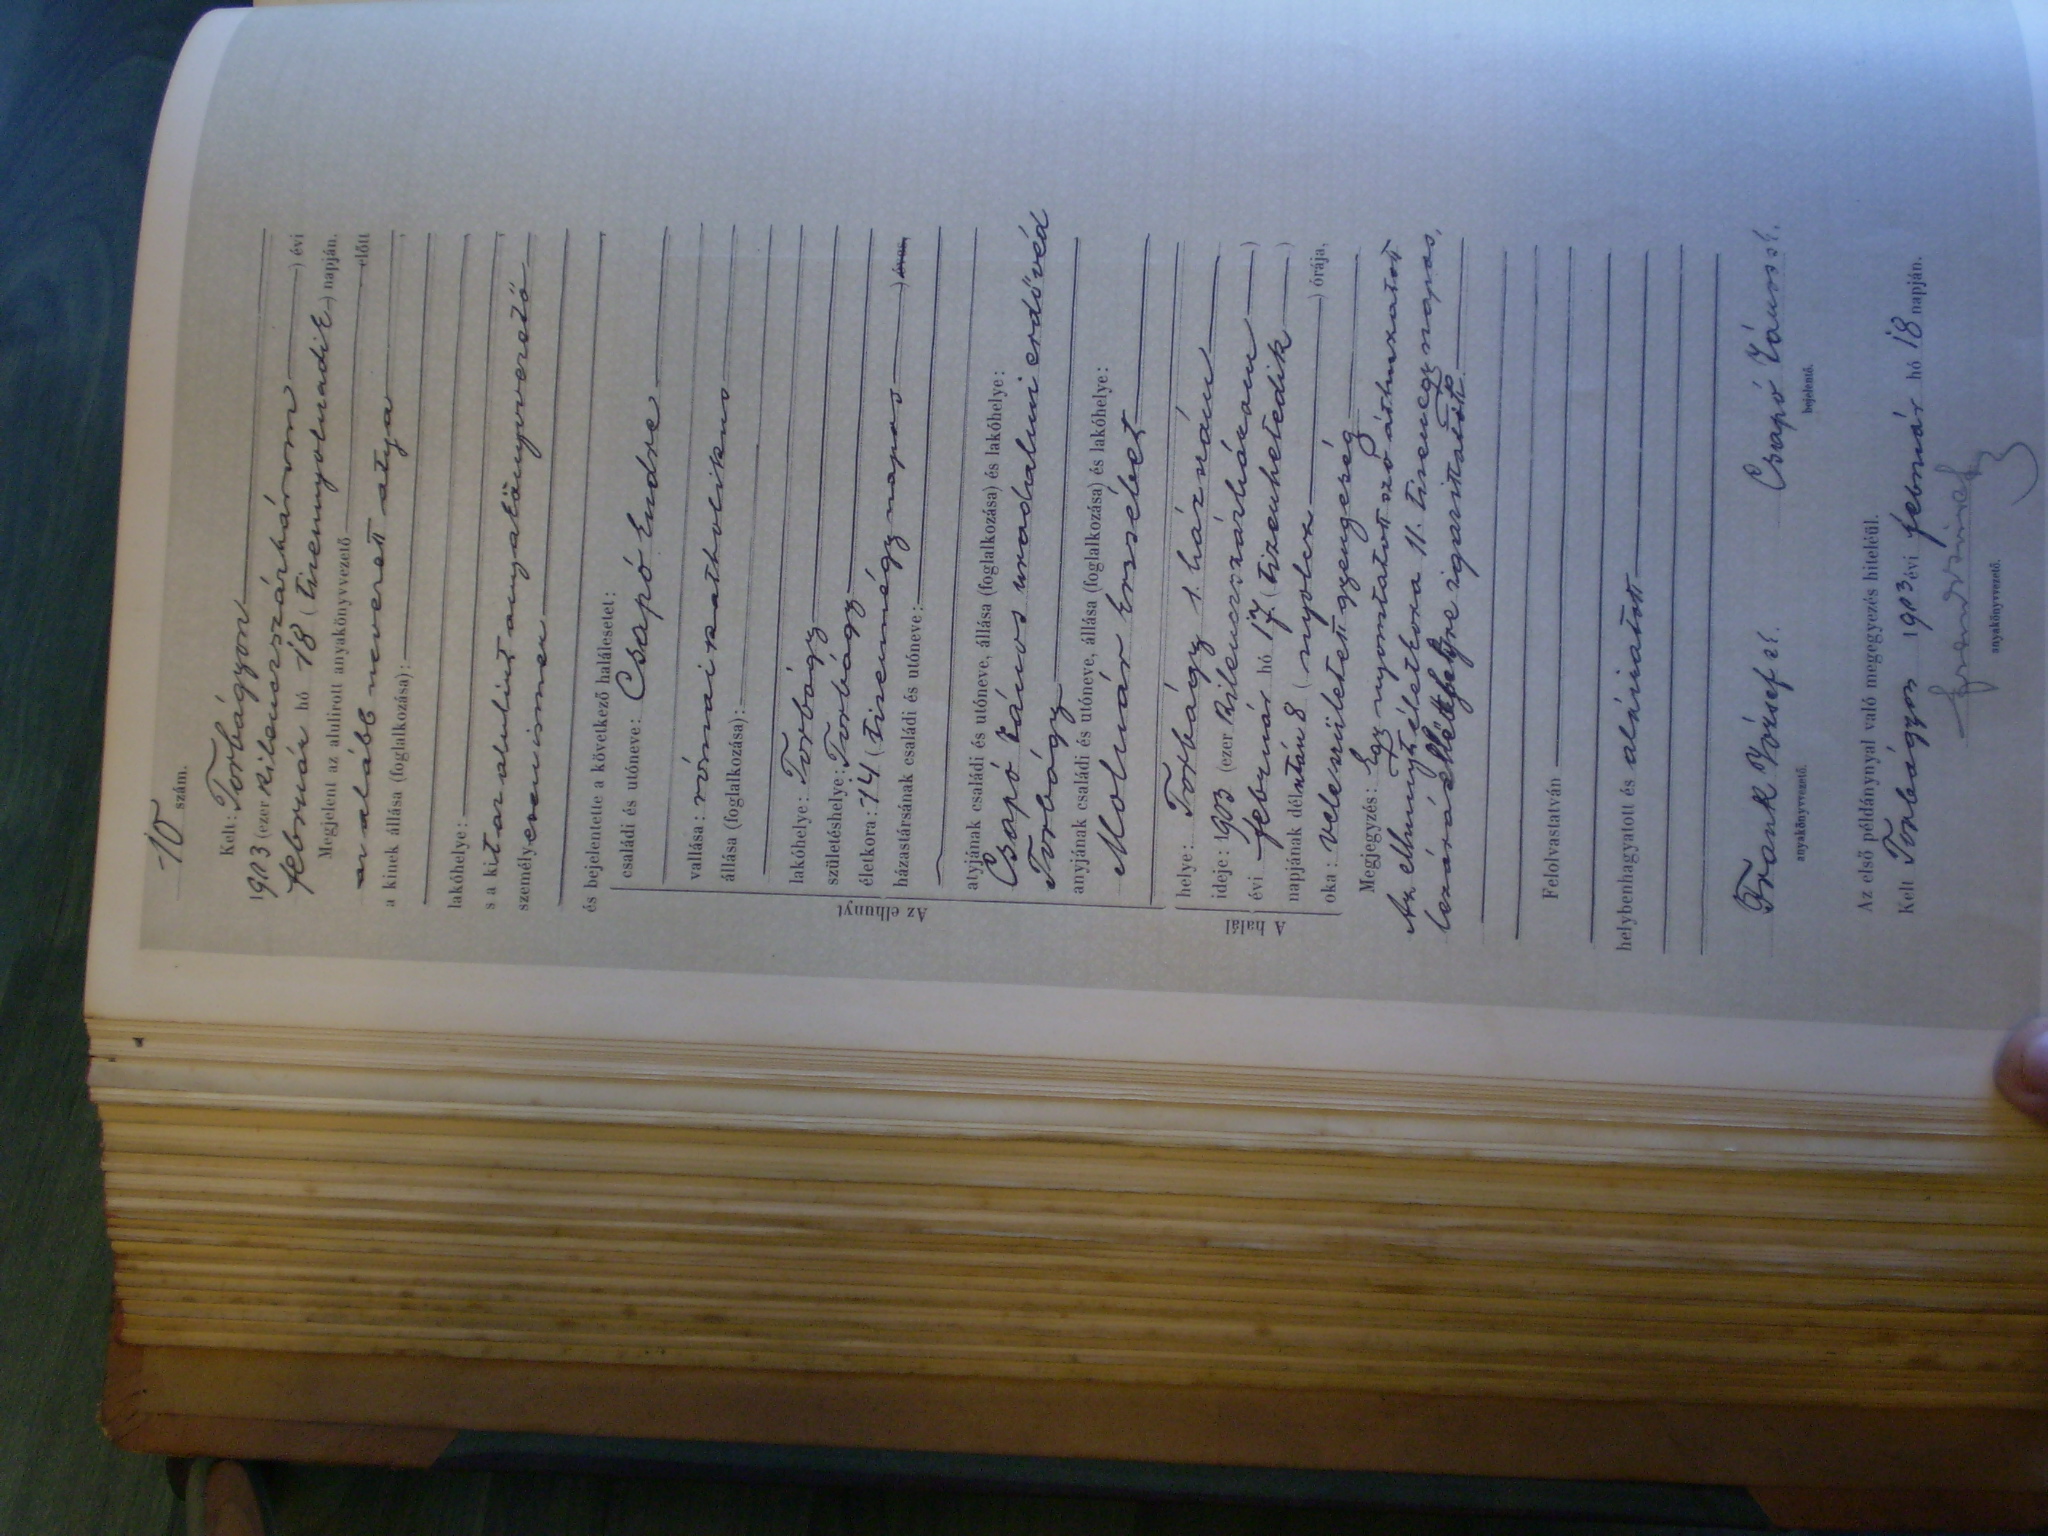 10 szám.
Kelt: Torbágyon
1903 (ezer kilenczszázhárom) évi
február hó 18 (tizennyolczadik) napján.
Megjelent az alulirott anyakönyvvezető előtt
az alább nevezett atya
a kinek állása (foglalkozása):
lakóhelye:
s a kit az alulírt anyakönyvvezető
személyesen ismer
és bejelentette a következő halálesetet:
Az elhunyt
családi és utóneve: Csapó Endre
vallása: római katholikus
állása (foglalkozása):
lakóhelye: Torbágy
születéshelye: Torbágy
életkora: 14 (tizennégy napos) éves,
házastársának családi és utóneve:
atyjának családi és utóneve, állása (foglalkozása) és lakóhelye:
Csapó János uradalmi erdővéd
Torbágy
anyjának családi és utóneve, állása (foglalkozása) és lakóhelye:
Molnár Erzsébet
A halál
helye: Torbágy 1. házszám
ideje: 1903 (ezer kilenczszázhárom)
évi február hó 17 (tizenhetedik)
napjának délután 8 (nyolcz) órája,
oka: veleszületett gyengeség
Megjegyzés: Egy nyomtatott szó áthuzatott
Az elhunyt életkora 11. tizenegy napos,
lezárás előtt igazittatott.
Felolvastatván
helybenhagyatott és aláiratott
Frank József sk. Csapó János sk.
anyakönyvvezető. bejelentő.
Az első példánynyal való megegyezés hiteléül.
Kelt Torbágyon 1903 évi február hó 18 napján.
Frank József
anyakönyvvezető.